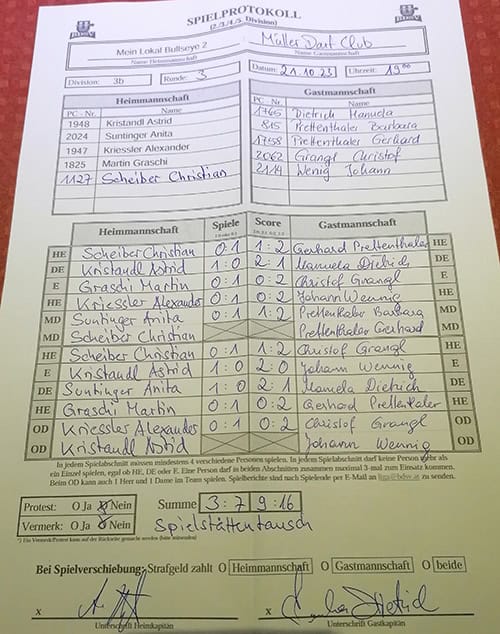 SPIELPROTOKOLL
(2/3/4/5. Division)
Mein Lokal Bullseye 2 Müller Dart Club
Name Heimmannschaft Name Gastmannschaft
Division: 3b Runde: 3 Datum: 21.10.23 Uhrzeit: 19°°
Heimmannschaft Gastmannschaft
PC - Nr. Name PC - Nr. Name
1948 Kristandl Astrid 1765 Dietrich Manuela
2024 Suntinger Anita 815 Prettenthaler Barbara
1947 Kriessler Alexander 1758 Prettenthaler Gerhard
1825 Martin Graschi 2062 Grangl Christof
1127 Scheiber Christian 2114 Wenig Johann
Heimmannschaft Spiele Score Gastmannschaft
HE Scheiber Christian 0:1 1:2 Gerhard Prettenthaler HE
DE Kristandl Astrid 1:0 2:1 Manuela Dietrich DE
E Graschi Martin 0:1 0:2 Christof Grangl E
HE Kriessler Alexander 0:1 0:2 Johann Wennig HE
MD Suntinger Anita 0:1 1:2 Prettenthaler Barbara MD
MD Scheiber Christian Prettenthaler Gerhard MD
HE Scheiber Christian 0:1 1:2 Christof Grangl HE
E Kristandl Astrid 1:0 2:0 Johann Wennig E
DE Suntinger Anita 1:0 2:1 Manuela Dietrich DE
HE Graschi Martin 0:1 0:2 Gerhard Prettenthaler HE
OD Kriessler Alexander 0:1 0:2 Christof Grangl OD
OD Kristandl Astrid Johann Wennig OD
In jedem Spielabschnitt müssen mindestens 4 verschiedene Personen spielen. In jedem Spielabschnitt darf keine Person mehr als
ein Einzel spielen, egal ob HE, DE oder E. Eine Person darf in beiden Abschnitten zusammen maximal 3-mal zum Einsatz kommen.
Beim OD kann auch 1 Herr und 1 Dame im Team spielen. Spielberichte sind nach Spielende per E-Mail an liga@bdsv.at zu senden.
Protest: O Ja O Nein Summe 3:7 9:16
Vermerk: O Ja O Nein Spielstättentausch
*) Ein Vermerk/Protest kann auf der Rückseite gemacht werden (bitte ankreuzen)
Bei Spielverschiebung: Strafgeld zahlt O Heimmannschaft O Gastmannschaft O beide
x x
Unterschrift Heimkapitän Unterschrift Gastkapitän